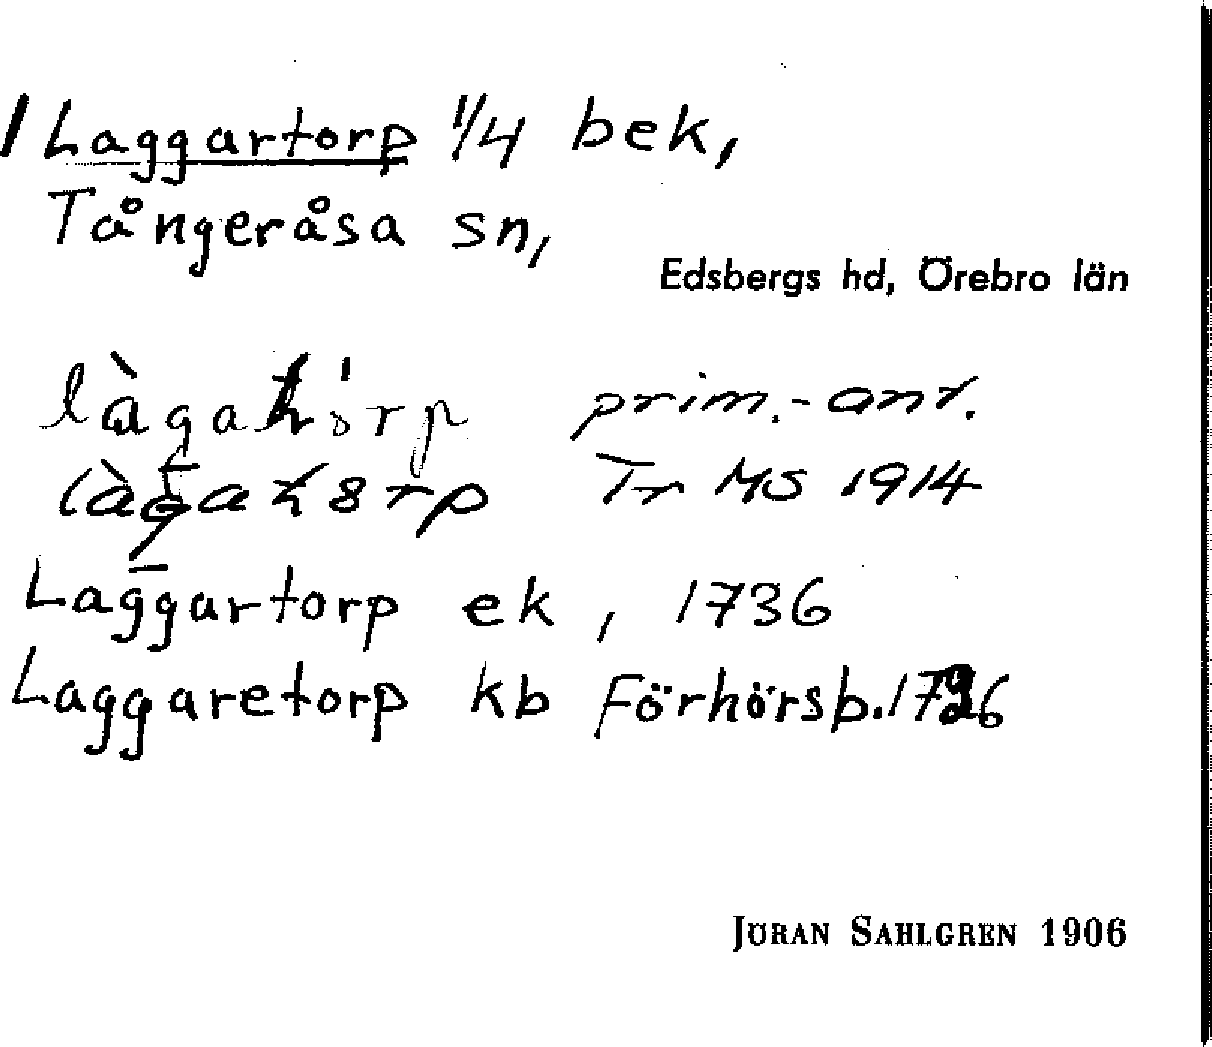 Laggartorp 1/4 bek,
Tångeråsa sn,
Edsbergs hd, Örebro län
prim.-ant.
Tr MS 1914
Laggartorp ek, 1736
Laggaretorp kb Förhörsb.
JÖRAN SAHLGREN 1906